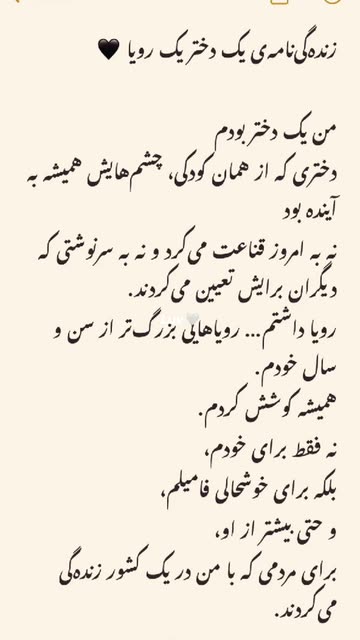 زنده‌گی‌نامه‌ی یک دختر یک رویا 🖤
من یک دختر بودم
دختری که از همان کودکی، چشم‌هایش همیشه به
آینده بود
نه به امروز قناعت می‌کرد و نه به سرنوشتی که
دیگران برایش تعیین می‌کردند.
رویا داشتم... رویاهایی بزرگ‌تر از سن و
سال خودم.
همیشه کوشش کردم.
نه فقط برای خودم،
بلکه برای خوشحالی فامیلم،
و حتی بیشتر از او،
برای مردمی که با من در یک کشور زنده‌گی
می‌کردند.